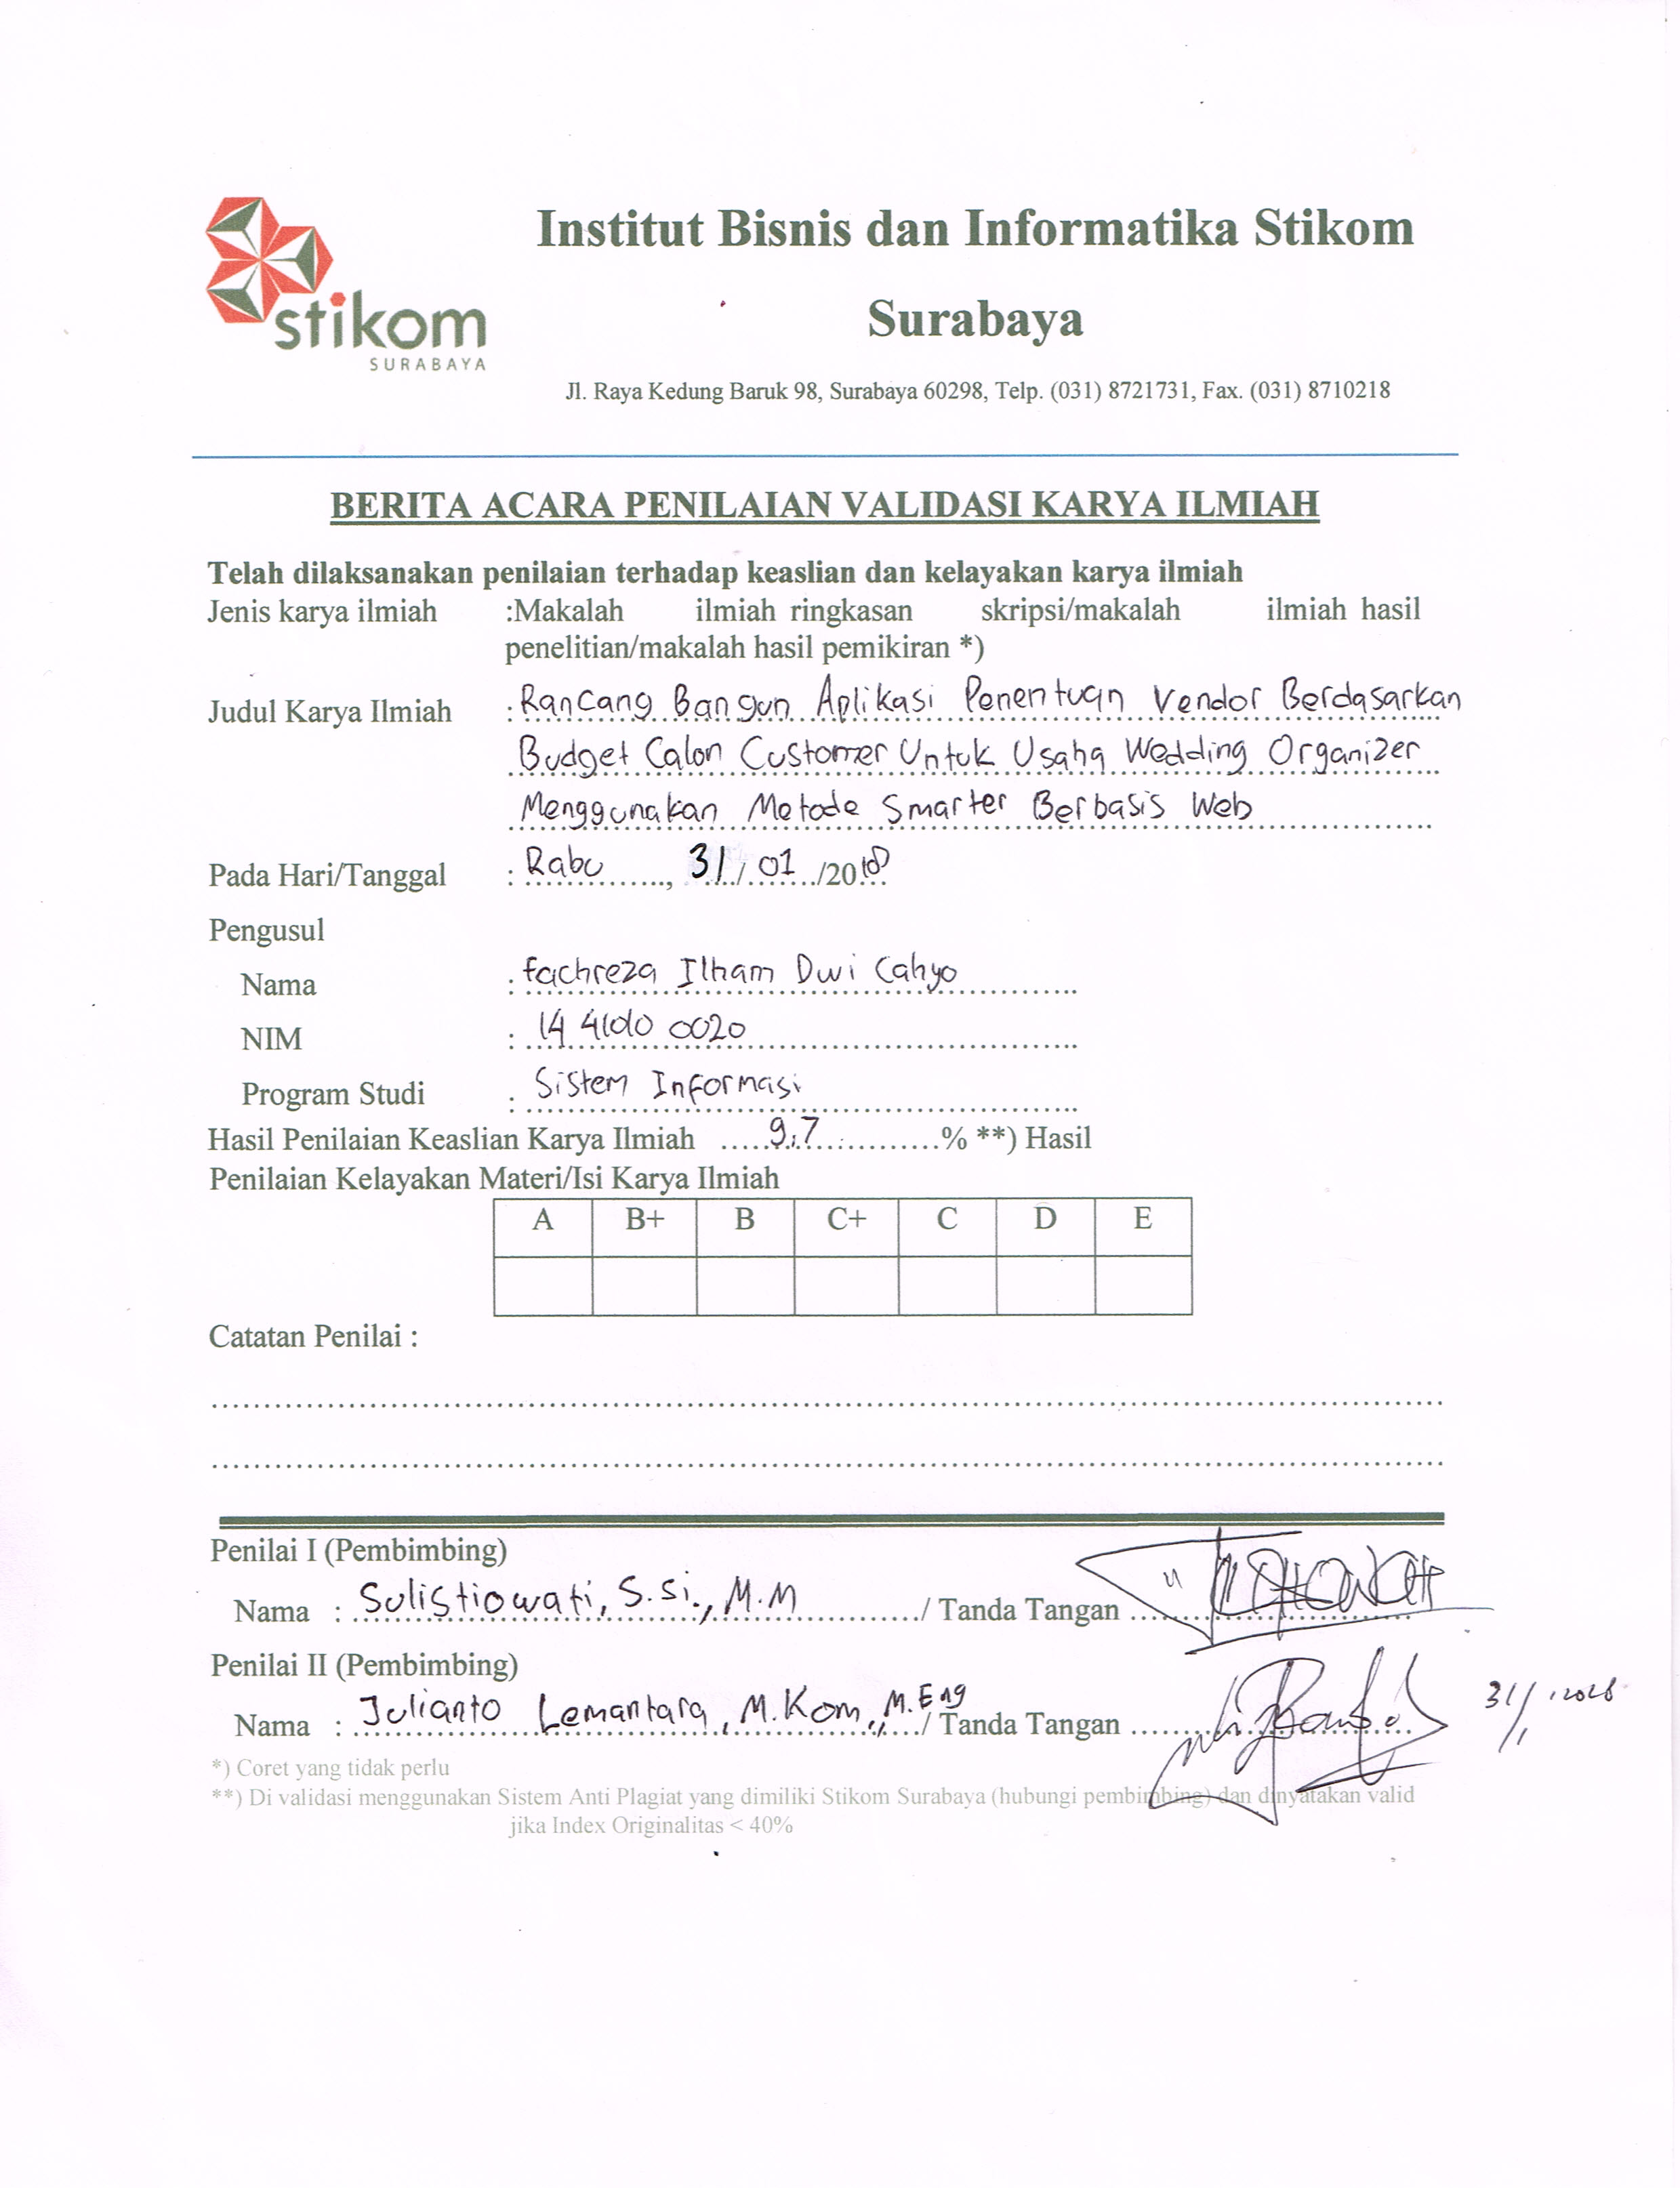 stikom
SURABAYA
Institut Bisnis dan Informatika Stikom
Surabaya
Jl. Raya Kedung Baruk 98, Surabaya 60298, Telp. (031) 8721731, Fax. (031) 8710218
BERITA ACARA PENILAIAN VALIDASI KARYA ILMIAH
Telah dilaksanakan penilaian terhadap keaslian dan kelayakan karya ilmiah
Jenis karya ilmiah :Makalah ilmiah ringkasan skripsi/makalah ilmiah hasil
penelitian/makalah hasil pemikiran *)
Judul Karya Ilmiah : Rancang Bangun Aplikasi Penentuan Vendor Berdasarkan
Budget Calon Customer Untuk Usaha Wedding Organizer
Menggunakan Metode Smarter Berbasis Web
Pada Hari/Tanggal : Rabu, 31/01/2018
Pengusul
Nama : Fachreza Ilham Dwi Cahyo
NIM : 14 4100 0020
Program Studi : Sistem Informasi
Hasil Penilaian Keaslian Karya Ilmiah .....9,7............% **) Hasil
Penilaian Kelayakan Materi/Isi Karya Ilmiah
A B+ B C+ C D E
Catatan Penilai :
Penilai I (Pembimbing)
Nama : Sulistiowati, S.Si., M.M / Tanda Tangan
Penilai II (Pembimbing)
Nama : Julianto Lemantara, M.Kom., M.Eng / Tanda Tangan
*) Coret yang tidak perlu
**) Di validasi menggunakan Sistem Anti Plagiat yang dimiliki Stikom Surabaya (hubungi pembimbing) dan dinyatakan valid
jika Index Originalitas < 40%